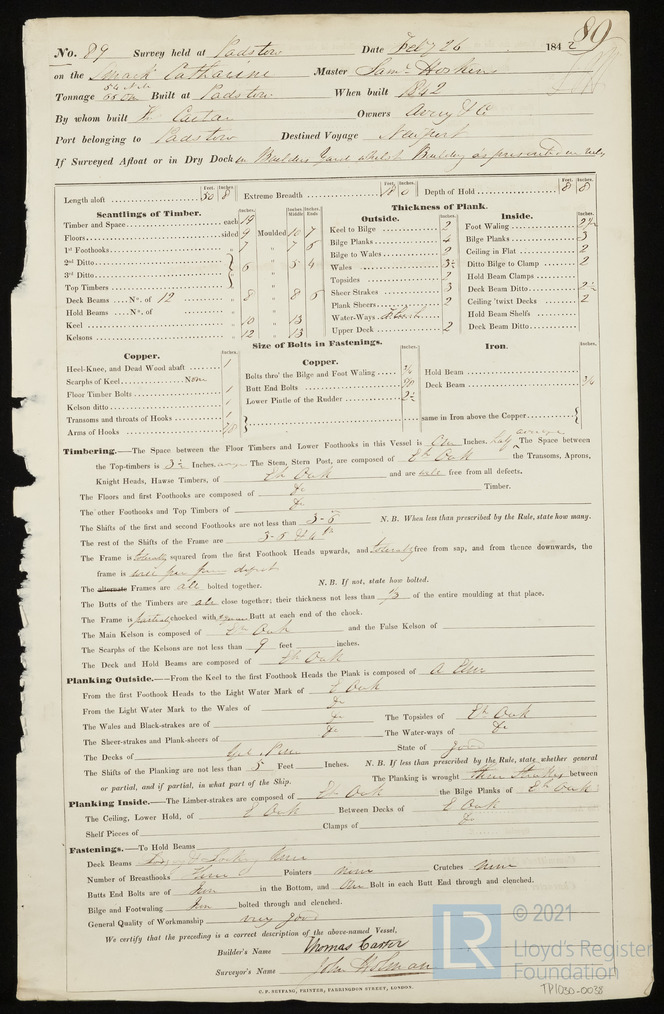 89
No. 89 Survey held at Padstow Date Feby 26 1842
on the Smack Catharine Master Saml Hoskins
Tonnage Built at Padstow When built 1842
By whom built Th Carter Owners Avery & Co
Port belonging to Padstow Destined Voyage Newport
If Surveyed Afloat or in Dry Dock in Builders Yard whilst Building as presented in rules
Feet. Inches. Feet. Inches. Feet. Inches.
Length aloft 50 8 Extreme Breadth 18 0 Depth of Hold 8 8
Scantlings of Timber.
Inches. Inches Middle Inches Ends
Timber and Space each 19
Floors sided 9 Moulded 10 7
1st Foothooks „ 7 „ 7 6
2nd Ditto
3rd Ditto „ 6 „ 5 4
Top Timbers
Deck Beams No. of 12 „ 8 „ 8 6
Hold Beams No. of „
Keel „ 10 „ 13
Kelsons „ 12 „ 13
Thickness of Plank.
Outside.
Keel to Bilge 2
Bilge Planks 4
Bilge to Wales 2
Wales 3½
Topsides 2
Sheer Strakes 3
Plank Sheers 2
Water-Ways
Upper Deck 2
Inside.
Foot Waling
Bilge Planks 3
Ceiling in Flat 2
Ditto Bilge to Clamp 2
Hold Beam Clamps
Deck Beam Ditto 2½
Ceiling 'twixt Decks 2
Hold Beam Shelfs
Deck Beam Ditto
Size of Bolts in Fastenings.
Copper. Inches.
Heel-Knee, and Dead Wood abaft 1
Scarphs of Keel None
Floor Timber Bolts 1
Kelson ditto 1
Transoms and throats of Hooks 1
Arms of Hooks 7/8
Copper. Inches.
Bolts thro' the Bilge and Foot Waling 3/4
Butt End Bolts
Lower Pintle of the Rudder 2½
Iron. Inches.
Hold Beam
Deck Beam 3/4
same in Iron above the Copper
Timbering.—The Space between the Floor Timbers and Lower Foothooks in this Vessel is One Inches. half average The Space between
the Top-timbers is 3½ Inches. average The Stem, Stern Post, are composed of Eh Oak the Transoms, Aprons,
Knight Heads, Hawse Timbers, of Eh Oak and are well free from all defects.
The Floors and first Footholds are composed of Do Timber.
The other Foothooks and Top Timbers of Do
The Shifts of the first and second Foothooks are not less than 3-8 N.B. When less than prescribed by the Rule, state how many.
The rest of the Shifts of the Frame are 3-5 & 4 ft
The Frame is tolerably squared from the first Foothook Heads upwards, and tolerably free from sap, and from thence downwards, the
frame is
The alternate Frames are all bolted together. N.B. If not, state how bolted.
The Butts of the Timbers are all close together; their thickness not less than 1/3 of the entire moulding at that place.
The Frame is partially chocked with square Butt at each end of the chock.
The Main Kelson is composed of Eh Oak and the False Kelson of
The Scarphs of the Kelsons are not less than 9 feet inches.
The Deck and Hold Beams are composed of Eh Oak
Planking Outside.—From the Keel to the first Foothook Heads the Plank is composed of A Elm
From the first Foothook Heads to the Light Water Mark of E Oak
From the Light Water Mark to the Wales of Do
The Wales and Black-strakes are of Do The Topsides of Eh Oak
The Sheer-strakes and Plank-sheers of Do The Water-ways of Do
The Decks of State of good
The Shifts of the Planking are not less than 5 Feet Inches. N.B. If less than prescribed by the Rule, state whether general
or partial, and if partial, in what part of the Ship. The Planking is wrought Three Strakes between
Planking Inside.—The Limber-strakes are composed of Eh Oak the Bilge Planks of Eh Oak
The Ceiling, Lower Hold, of E Oak Between Decks of E Oak
Shelf Pieces of Clamps of Do
Fastenings.—To Hold Beams
Deck Beams
Number of Breasthooks Three Pointers none Crutches none
Butts End Bolts are of Iron in the Bottom, and One Bolt in each Butt End through and clenched.
Bilge and Footwaling Iron bolted through and clenched.
General Quality of Workmanship very good
We certify that the preceding is a correct description of the above-named Vessel,
Builder's Name Thomas Carter
Surveyor's Name John Holman
C. F. SEYFANG, PRINTER, FARRINGDON STREET, LONDON.
LR © 2021
Lloyd's Register
Foundation
TP1030-0038